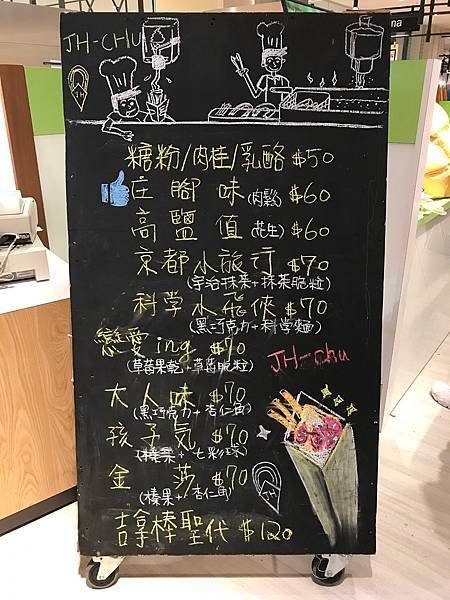 JH-CHU
na
JH
糖粉/肉桂/乳酪 $50
庄腳味(肉鬆) $60
高鹽值(花生) $60
京都小旅行 $70
(宇治抹茶+抹茶脆粒)
科学小飛俠 $70
(黑巧克力+科学麵)
戀愛ing $70
(草莓果乾+草莓脆粒)
JH-chu
大人味 $70
(黑巧克力+杏仁角)
孩子気 $70
(榛果+七彩球)
金莎 $70
(榛果+杏仁角)
JH
吉拿棒聖代 $120